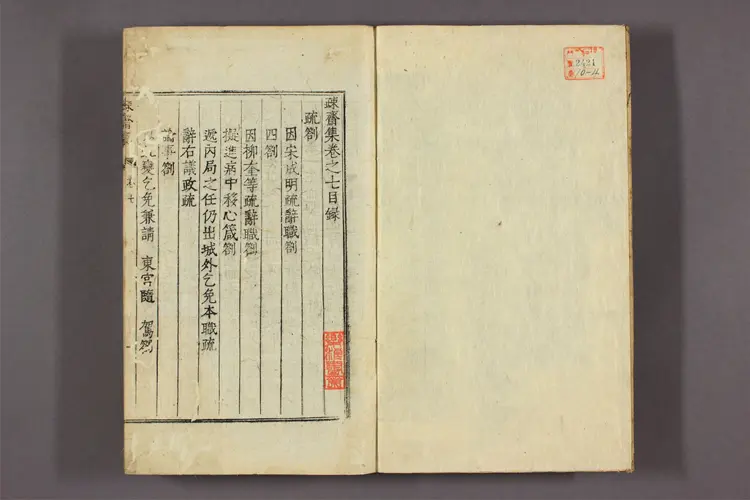 疎齋集卷之七目錄
疏劄
因宋成明疏辭職劄
四劄
因柳奎等疏辭職劄
擬進病中移心箴劄
遞內局之任仍出城外乞免本職疏
辭右議政疏
論事劄
變乞免兼請 東宮隨 駕劄
疎齋集
2421
10-4